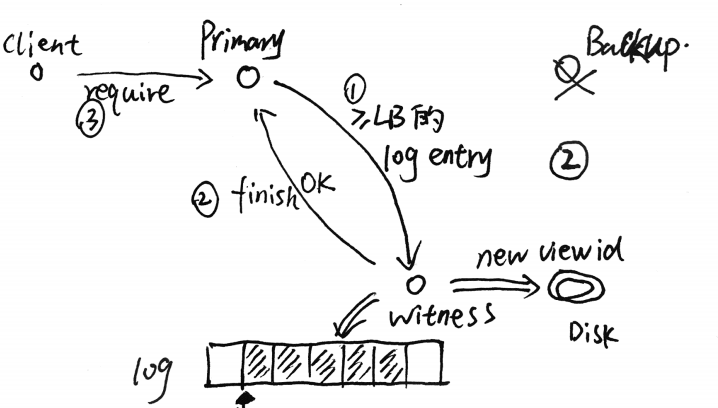 Client
Primary
Backup.
require
③
①
≥LB的
log entry
②
② finish OK
new viewid
witness
Disk
log